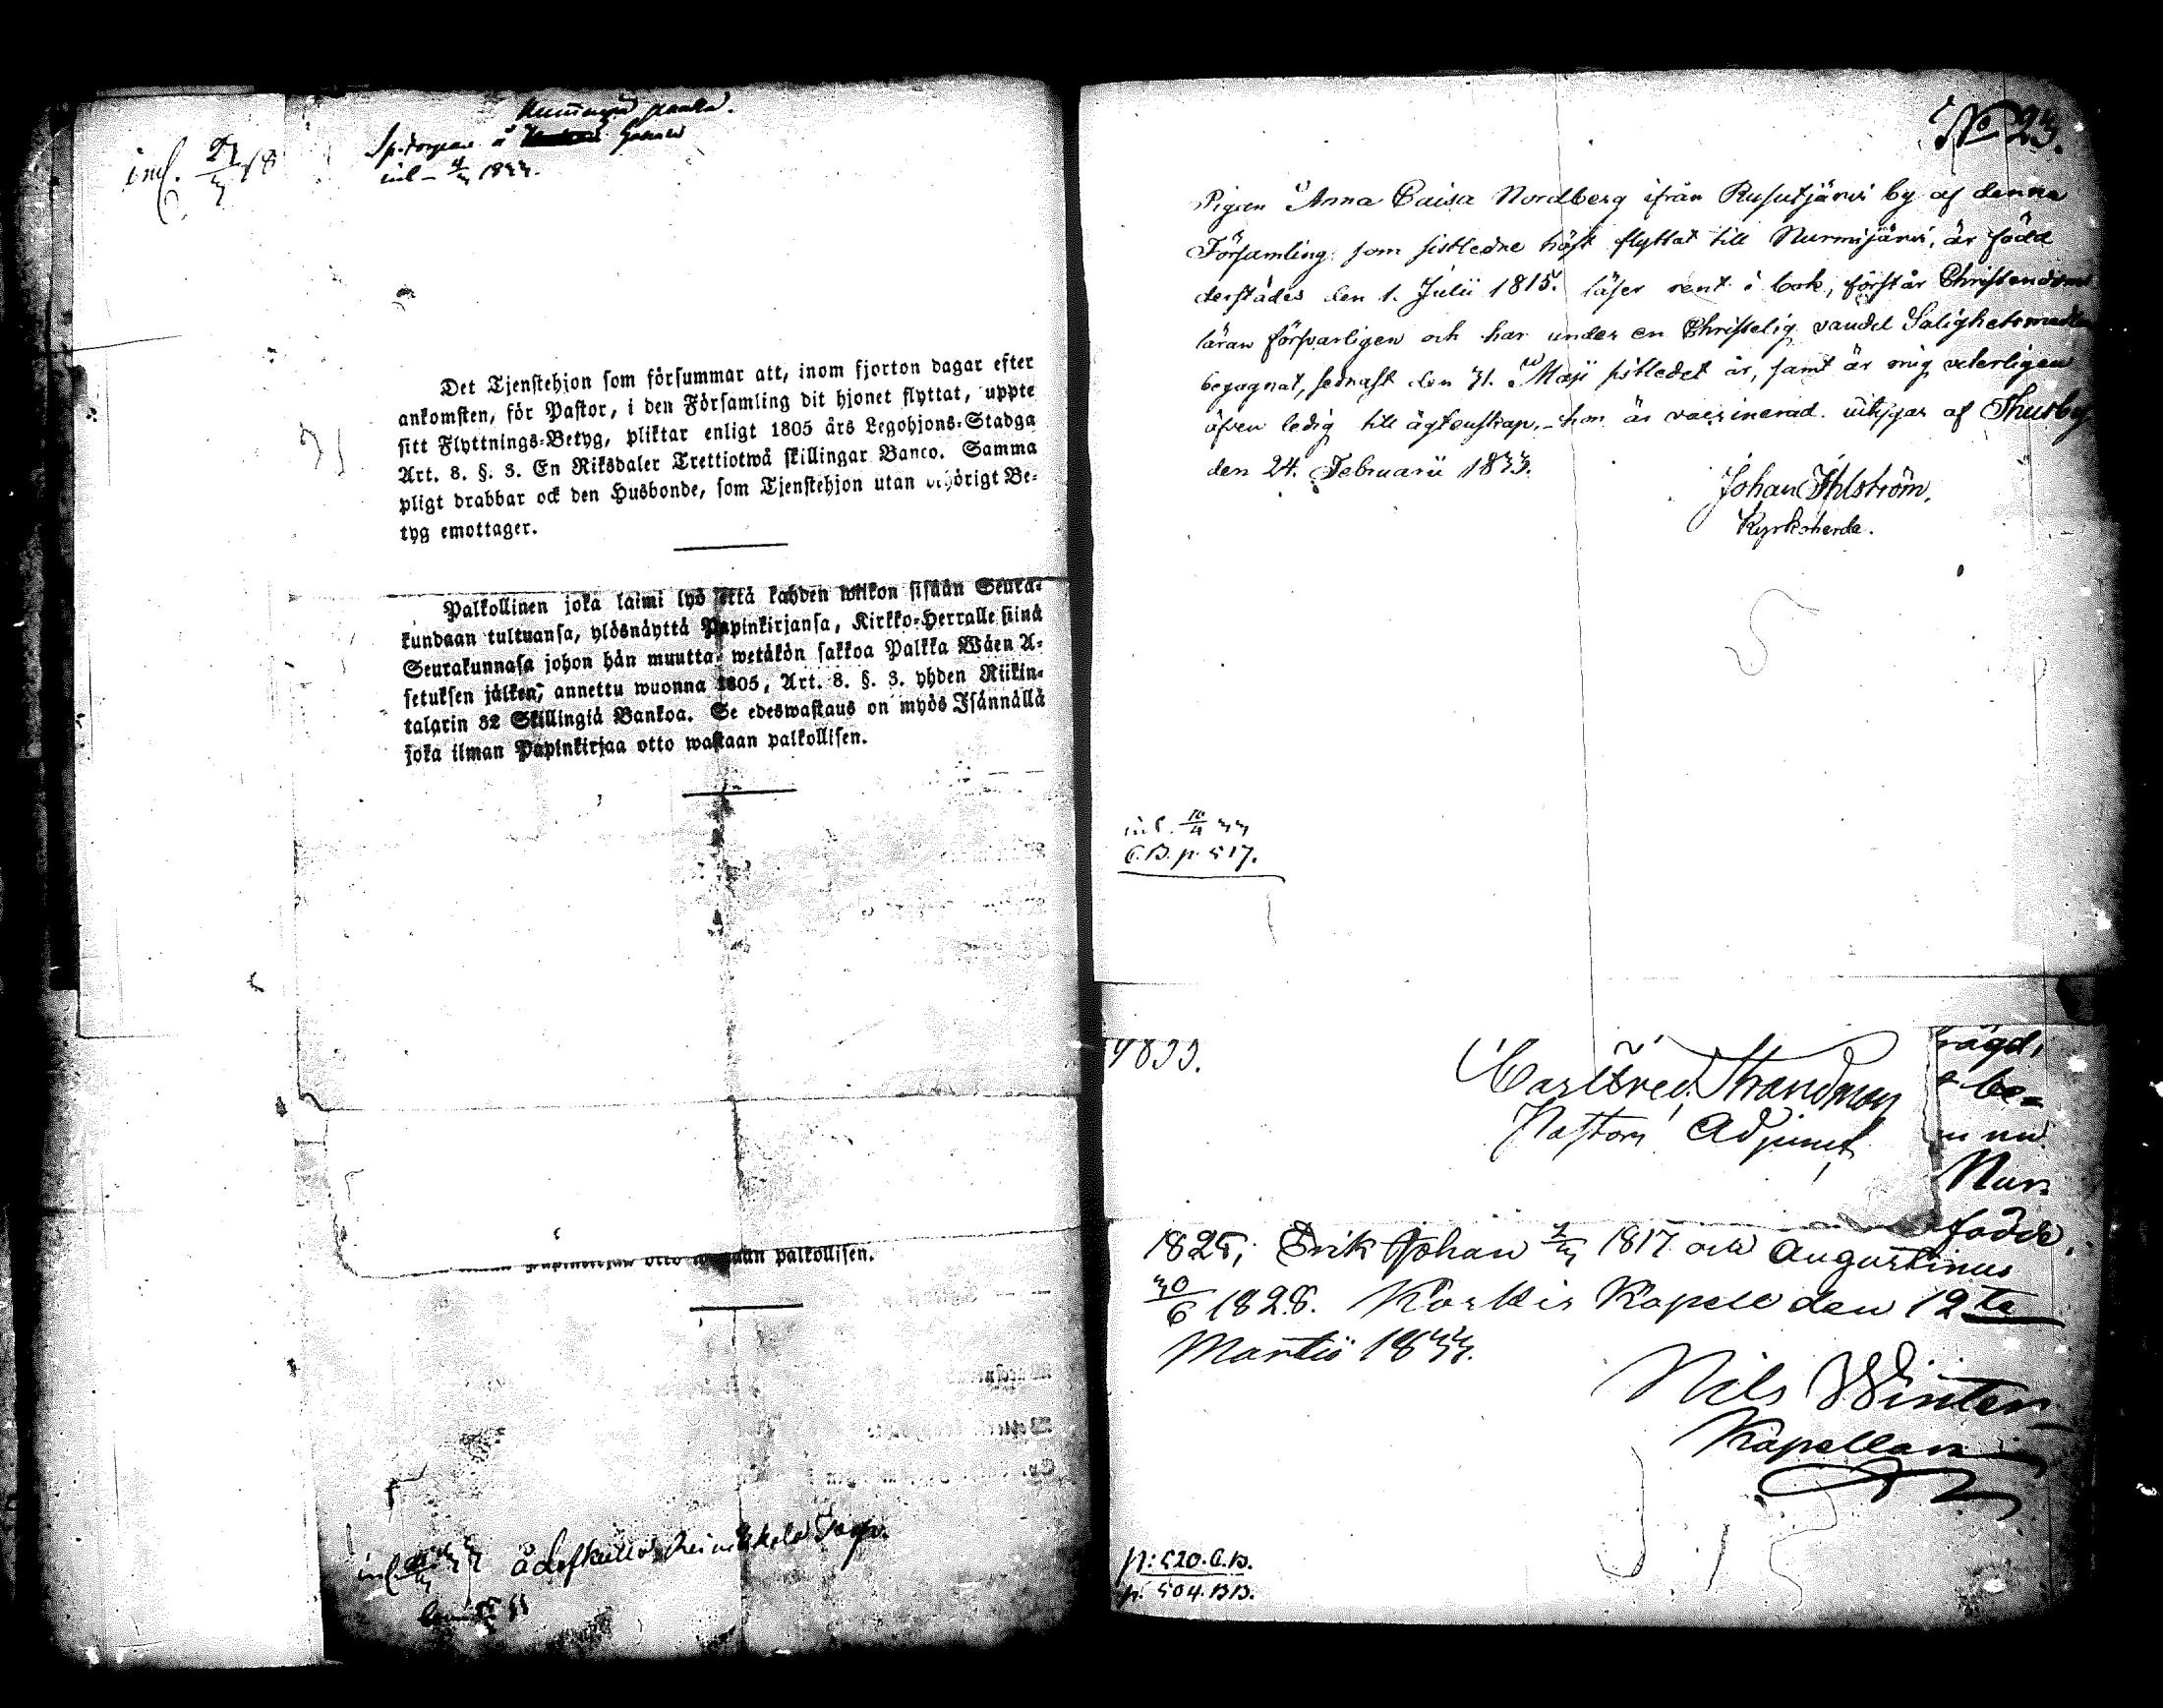 inl.
Sp. torpare å
inl. 1833.
Det Tjenstehjon som försummar att, inom fjorton dagar efter
ankomsten, för Pastor, i den Församling dit hjonet flyttat, uppte
sitt Flyttnings-Betyg, pliktar enligt 1805 års Legohjons-Stadga
Art. 8. §. 3. En Riksdaler Trettiotwå skillingar Banco. Samma
pligt drabbar ock den Husbonde, som Tjenstehjon utan behörigt Be-
tyg emottager.
Palkollinen joka laimi lyö että kahden wiikon sisään Seura-
kundaan tultuansa, ylösnäyttä Papinkirjansa, Kirkko-Herralle siinä
Seurakunnasa johon hän muutta, wetäkön sakkoa Palkka Wäen A-
setuksen jälken, annettu wuonna 1805, Art. 8. §. 3. yhden Riikin-
talarin 32 Skillingiä Bankoa. Se edeswastaus on myös Isännällä
joka ilman Papinkirjaa otto wastaan palkollisen.
Papinkirjaa otto wastaan palkollisen.
inl.
No 23.
Pigan Anna Caisa Nordberg ifrån Rusutjärvi by af denna
Församling som sistledne höst flyttat till Nurmijärvi, är född
derstädes den 1. Julii 1815. läser rent i bok, förstår Christendoms
läran försvarligen och har under en Christelig vandel Salighetsmedlen
begagnat, sednast den 31. Maji sistledet år, samt är mig veterligen
äfven ledig till ägtenskap, - hon är vaccinerad. utsyas af Thusby
den 24. Februarii 1833.
Johan Ahlström.
Kyrkoherde.
inl. 10/4 33
C.B. p. 517.
1833.
Carl Fred. Strandman
Pastors Adjunct
rägd,
be-
nu
Nur
födde
1825, Erik Johan 1817 och Augustinus
30/6 1828. Karkis Kapell den 12te
Martii 1833.
Nils Winter
Kapellan
p: 520. C.B.
p. 504. BB.